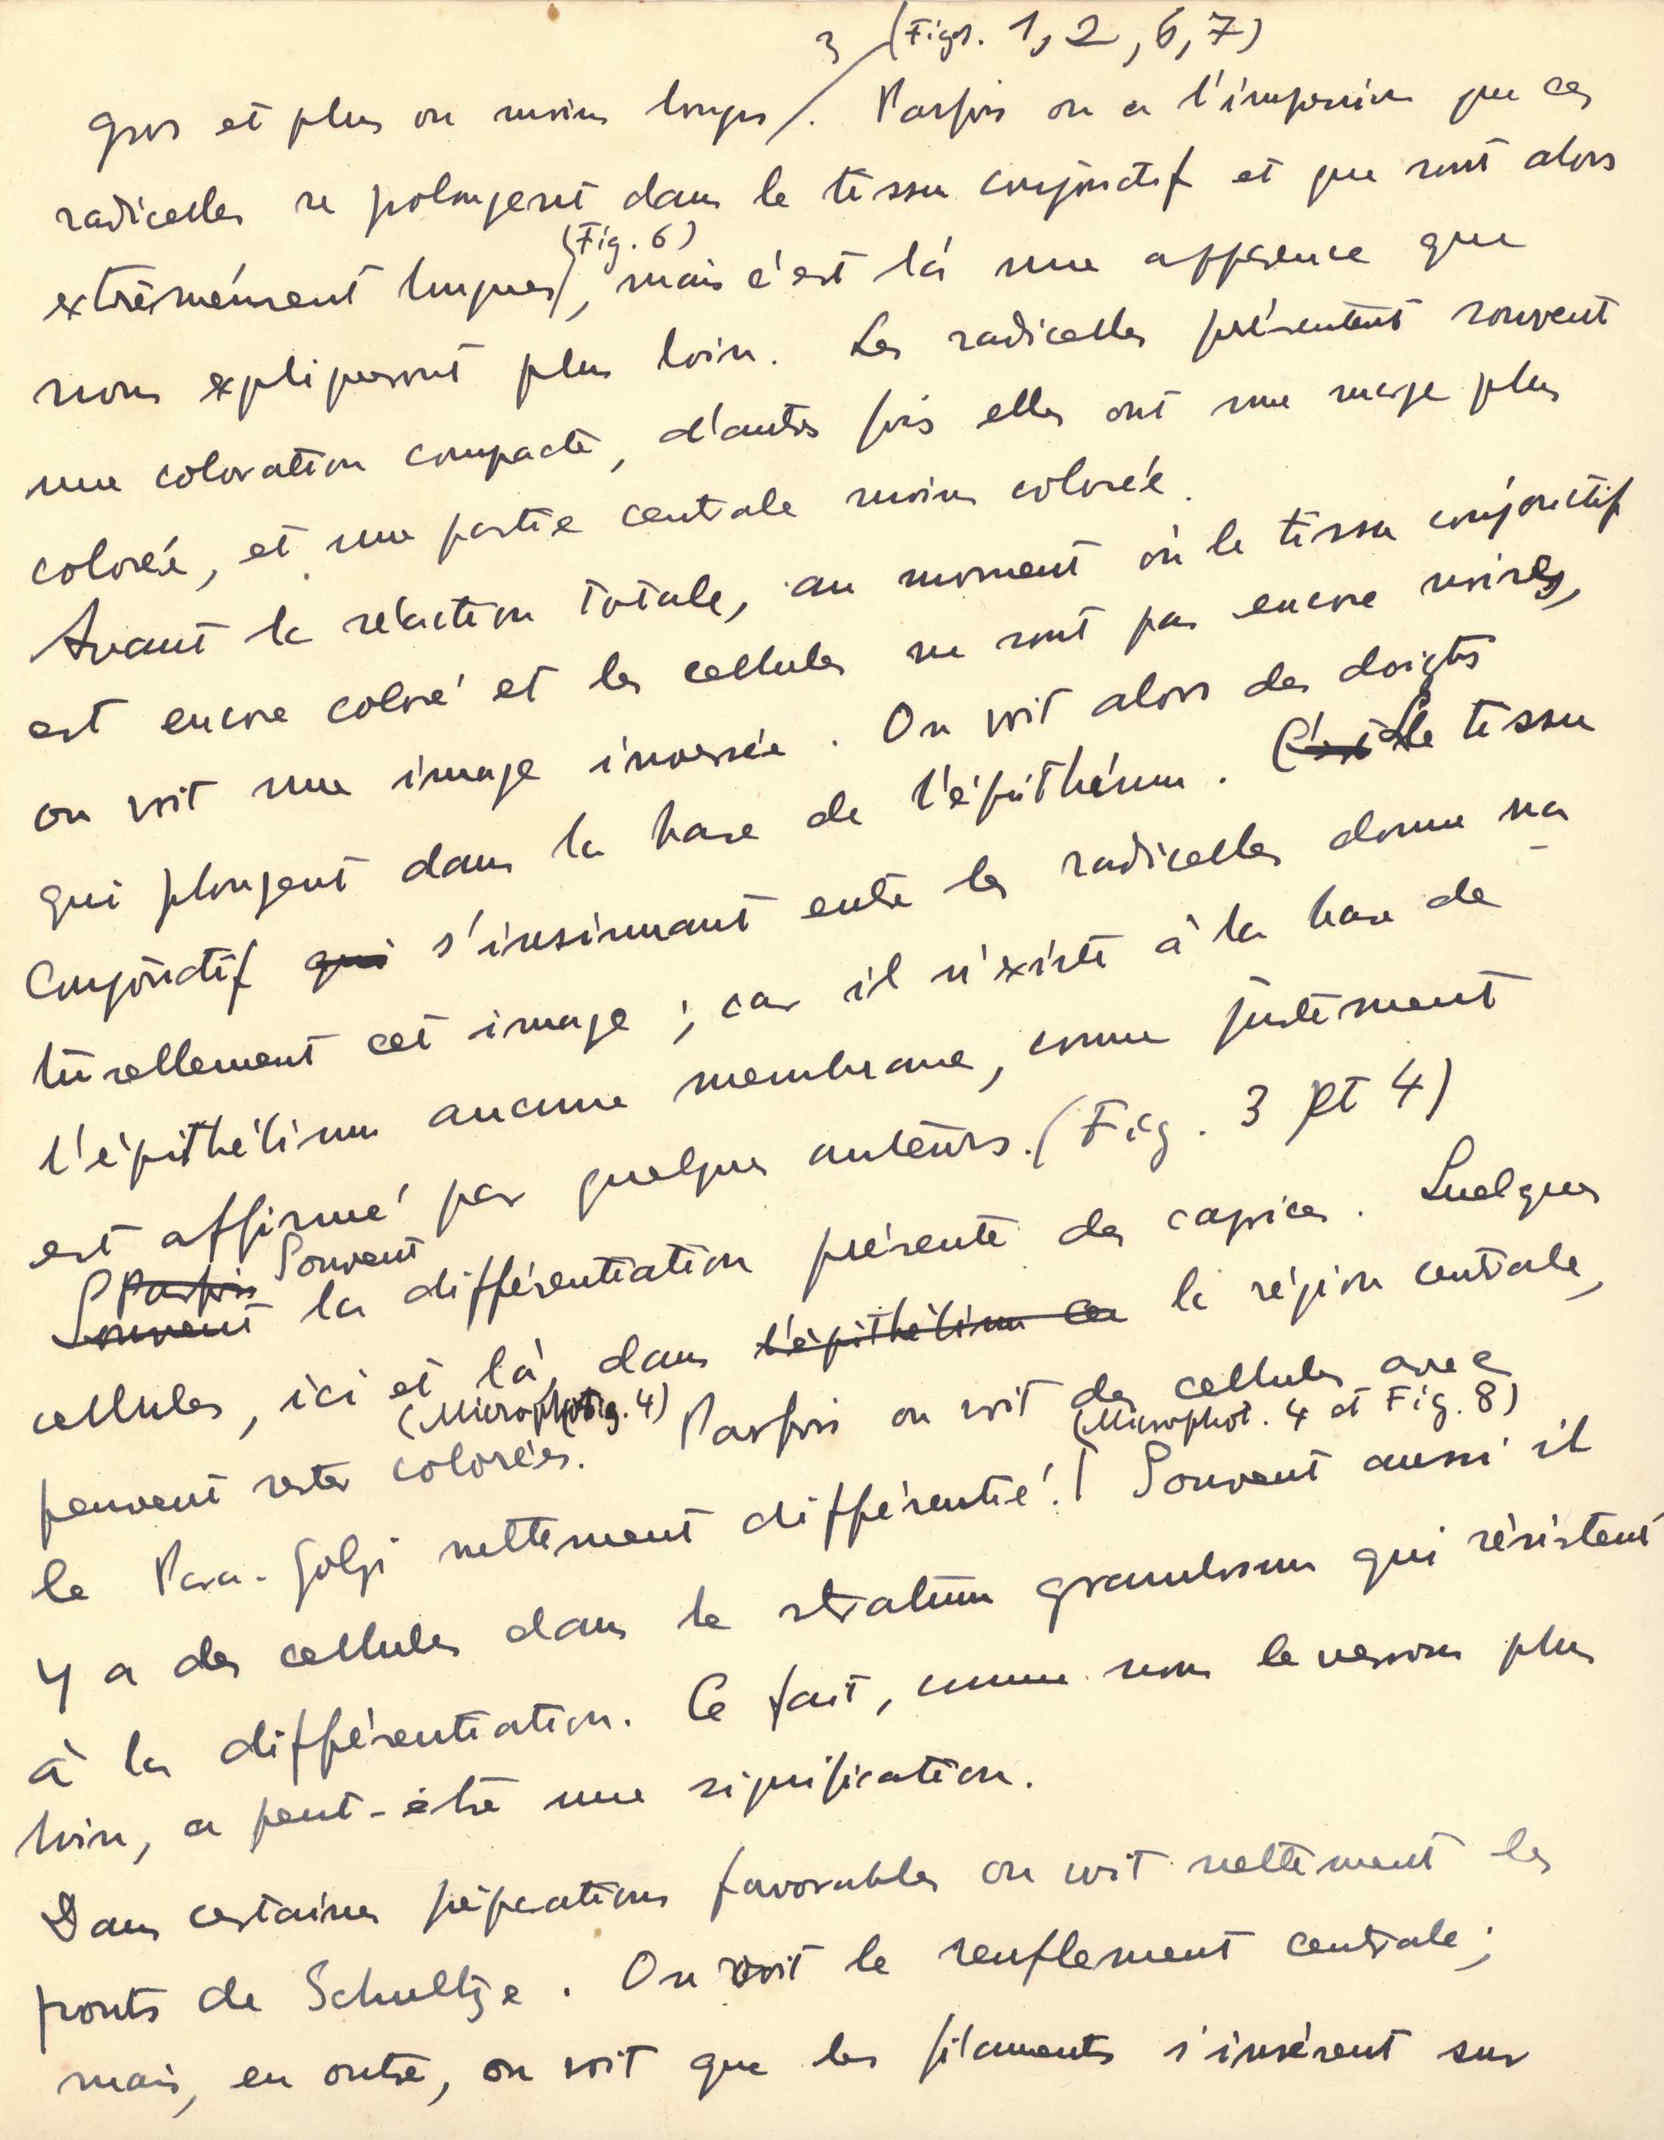 3 (Figs. 1, 2, 6, 7)
gros et plus ou moins longs. Parfois on a l'impression que ces
radicelles se polongent dans le tissu conjonctif et que sont alors
(Fig. 6)
extrêmément longues, mais c'est là une apparence que
nous expliqueront plus loin. Les radicelles présentent souvent
une coloration compacte, d'autres fois elles ont une marge plus
colorée, et une partie centrale moins colorée.
Avant la réaction totale, au moment où le tissu conjonctif
est encore coloré et les cellules ne sont pas encore noires,
on voit une image inversée. On voit alors des doigts
qui plongent dans la base de l'épithélium. C'est Le tissu
Conjonctif qui s'insinuant entre les radicelles donne na
turellement cet image; car il n'existe à la base de
l'épithélium aucune membrane, comme justement
est affirmé par quelques auteurs. (Fig. 3 et 4)
Parfois Souvent
Souvent la différentiation présente des caprices. Quelques
cellules, ici et là, dans l'épithélium la région centrale,
(Microphot. 4)
peuvent rester colorées. Parfois on voit des cellules avec
(Microphot. 4 et Fig. 8)
le Para-Golgi nettement différentié. Souvent aussi il
y a des cellules dans le stratum granulosum qui résistent
à la différentiation. Ce fait, comme nous le verrons plus
loin, a peut-être une signification.
Dans certaines préparations favorables on voit nettement les
ponts de Schultze. On voit le renflement centrale;
mais, en outre, on voit que les filaments s'insèrent sur